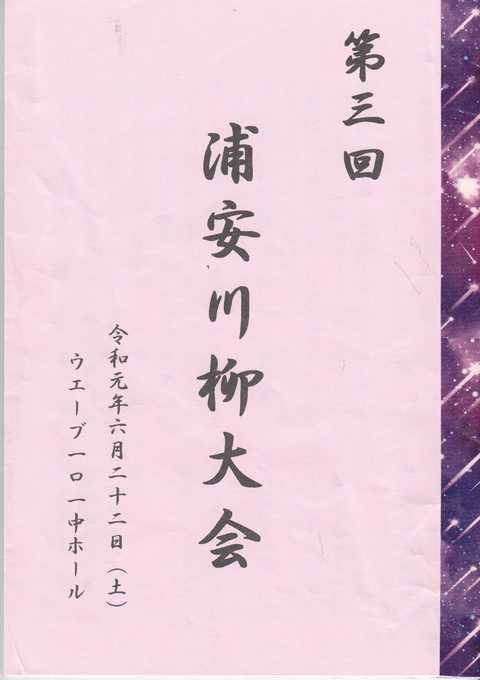 第三回
浦安川柳大会
令和元年六月二十二日（土）
ウエーブ一〇一中ホール